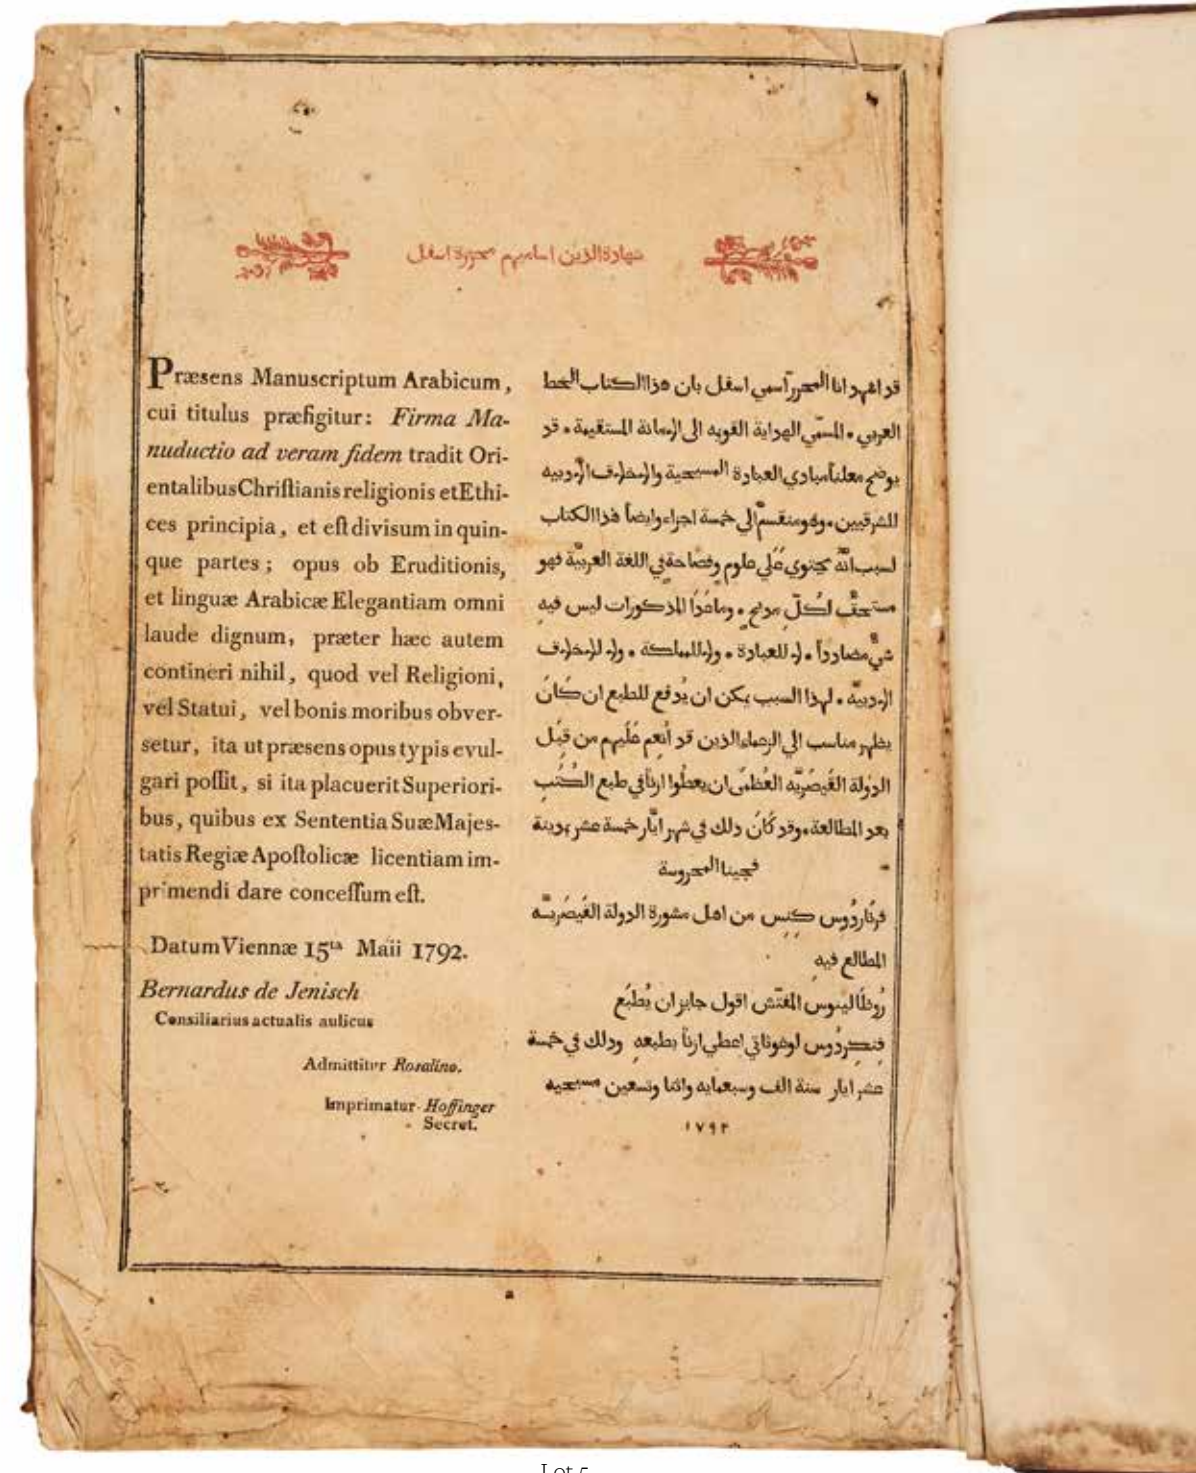 شهادة الذين اساميهم محررة اسفل
Præsens Manuscriptum Arabicum,
cui titulus præfigitur: Firma Ma-
nuductio ad veram fidem tradit Ori-
entalibus Chriſtianis religionis et Ethi-
ces principia, et eſt divisum in quin-
que partes; opus ob Eruditionis,
et linguæ Arabicæ Elegantiam omni
laude dignum, præter hæc autem
contineri nihil, quod vel Religioni,
vel Statui, vel bonis moribus obver-
setur, ita ut præsens opus typis evul-
gari poſſit, si ita placuerit Superiori-
bus, quibus ex Sententia Suæ Majes-
tatis Regiæ Apoſtolicæ licentiam im-
primendi dare conceſſum eſt.
Datum Viennæ 15ta Maii 1792.
Bernardus de Jenisch
Consiliarius actualis aulicus
Admittitur Rosalino.
Imprimatur Hoffinger
Secret.
قد اشهد انا المحرر آسمي اسفل بان هذا الكتاب الخط
العربي . المسمّي الهداية القويه الى الامانة المستقيمة . قد
يوضح معلناً مبادي العبادة المسيحية والاخلاق الادبيه
للشرقيين . وهو منقسمٌ الي خمسة اجزاء وايضاً هذا الكتاب
لسبب انَّهُ يحتوي عَلي علوم وفصاحةٍ في اللغة العربيَّة فهو
مستحقٌّ لكُلّ مديحٍ . وماعَدَا المذكورات ليس فيهِ
شيٌ مضادداً . لا للعبادة . ولا للمملكة . ولا للاخلاق
الادبيَّه . لهذا السبب يمكن ان يُدفع للطبع ان كَانَ
يظهر مناسب الي الزعماء الذين قد اُنعِم عَلَيهم من قِبَل
الدولة القَيصَريَّه العُظمَى ان يعطُوا اذناً في طبع الكُتُب
بعد المطالعة . وقد كَانَ ذلك في شهر ايَّار خمسة عشر بمدينة
فيينا المحروسة
بَرنَاردُوس يَنِس من اهل مشورة الدولة القَيصَريَّه
المطالع فيهِ
المفتّش اقول جايز ان يُطبَع
اعطي اذناً بطبعهِ وذلك في خمسة
عشر ايار سنة الف وسبعمايه واثنا وتسعين مسيحيه
١٧٩٢
Lot 5